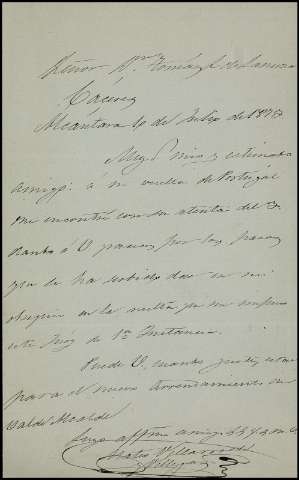 Señor Dn. Tomás
Cáceres
Alcántara 10 de Julio de 1876
Muy Sr. mio y estimado
amigo: á mi vuelta de Portugal
me encontré con su atenta del 3
dando á V. gracias por los pasos
que le ha sabido dar en mi
obsequio en la multa que me impuso
este Juez de 1ª Instancia.
Puede V. cuando guste, 
para el nuevo arrendamiento en
Valde Alcalde
Suyo affmo amigo S. S. q. b. s. m.